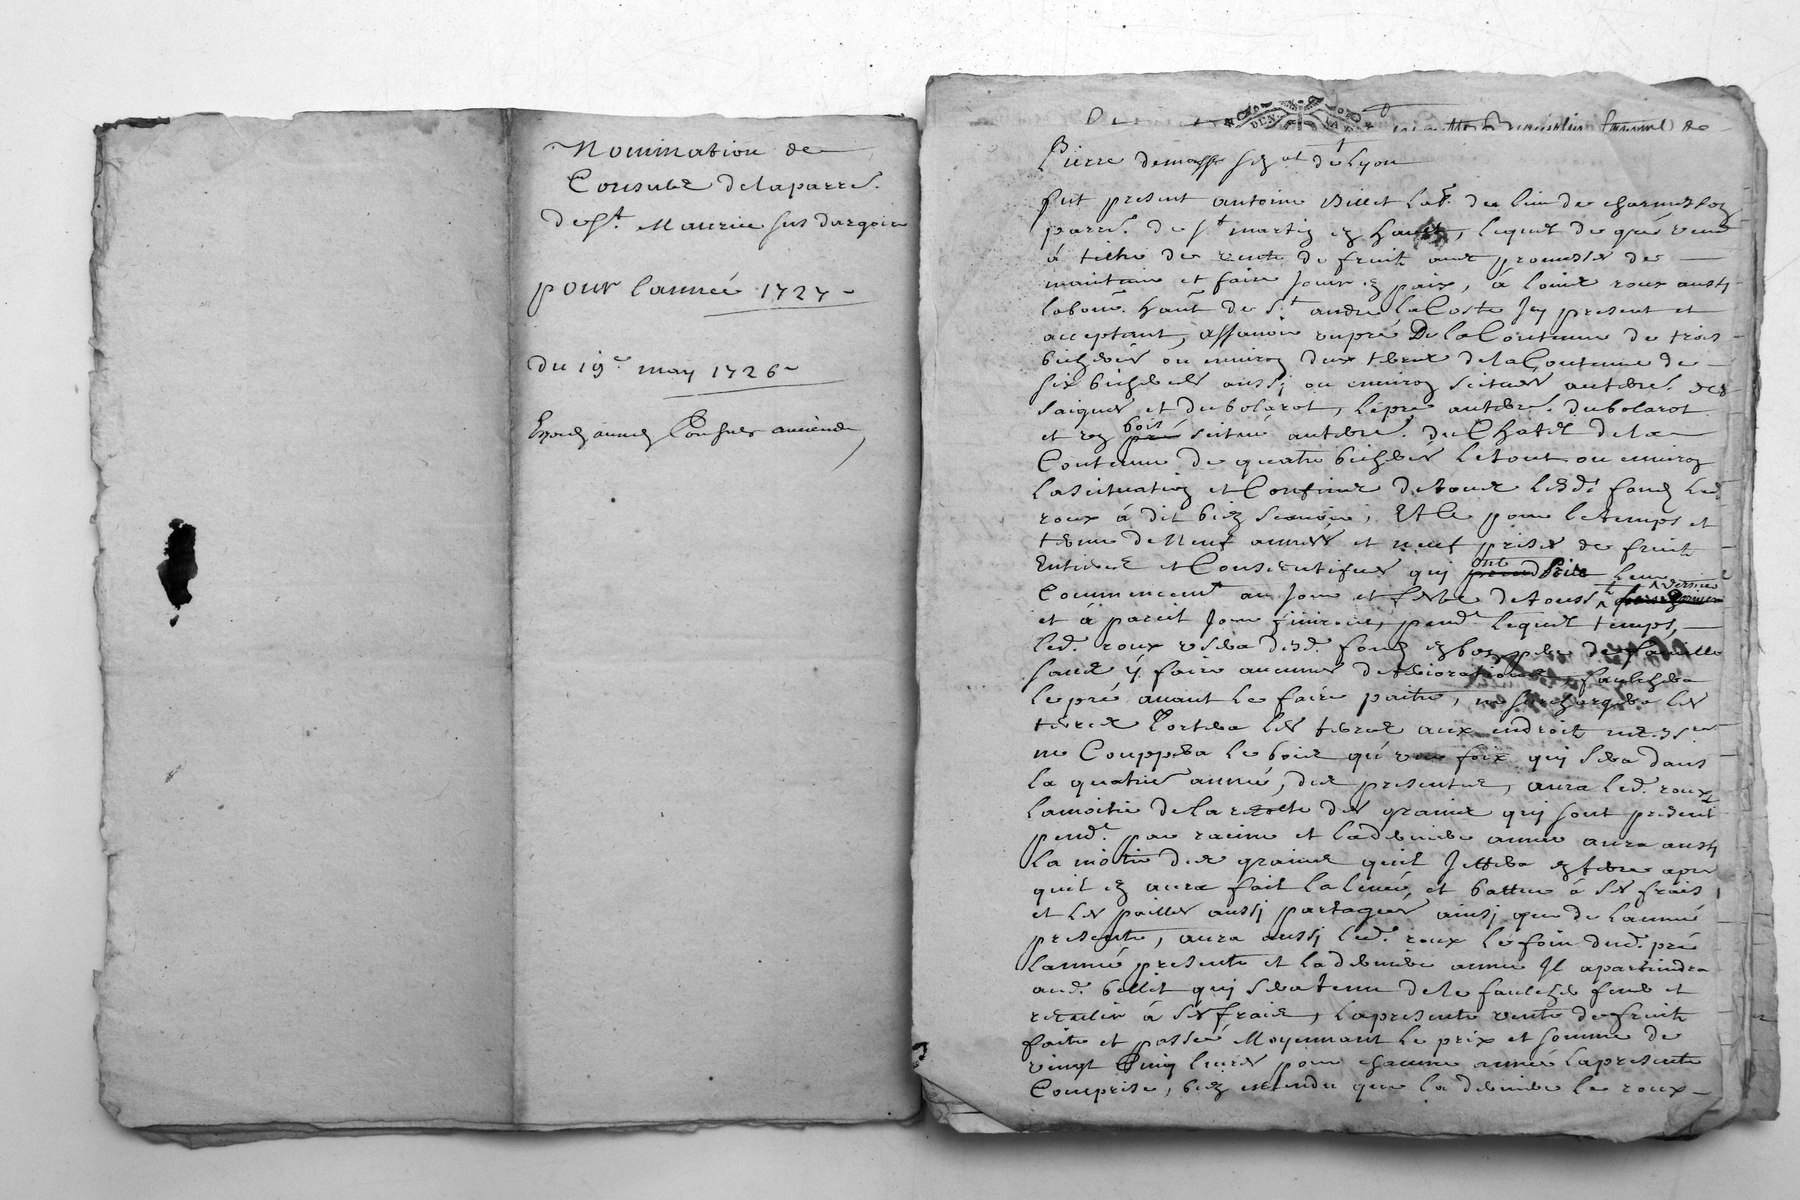 Nomination de
Consulz de la parre.
de St. Maurice sus dargoire
pour lannéé 1727
du 19e. may 1726
Consulz anciendz
DEN
Pierre demasse de Lyon
fut present antoine Billet Lab. du lieu de
parre. de St martin en haut, lequel de gré vend
à tiltre de vente de fruit avec promesse de
maintenir et faire Jouir en paix, à roux aussy
labour. hant. de St. andre La Coste Icy present et
acceptant, assavoir un pré De la Contenue de trois
bicherées ou environ deux terres de la Contenue de
six bicherees aussj ou environ scituées au terre. des
saignes et du bolarot, le pré au terre. du bolarot
et un bois pré scitué au terre. du Chatel de la
Contenue de quatre bicherées le tout ou environ
la scituation et Confines de tous lesd. fondz led.
roux à dit bien scavoir, Et Ce pour le temps et
terme de Neuf années et neuf prises de fruit
Entieres et Consecutifves quj ont prendront leur
Commencemt au Jour et feste de touss.
et à pareil Jour finiront, pend. lequel temps,
led. roux usera desd. fondz en bon pere de famille
sans ÿ faire aucunes deteriorations, fauchera
le pré avant le faire paitre, ne surchargera les
terres Portera les terres aux endroit necessres
ne Couppera le bois qu'une foix quj sera dans
la quatrie. année, des presentes, aura led. roux
la moitié de la recolte des graines quj sont present
pend. par racine et la derniere année aura aussy
la moitié des graines quil Jettera en terre apres
quil en aura fait la levée et battue à ses frais,
et les pailles aussj partagées ainsj que de lannée
presente, aura aussj led. roux le foin dud. pré
lannée presente et la derniere année Il apartiendra
aud. billet quj sera tenu de le faucher fener et
recuilir à ses frais, la presente vente de fruit
faite et passée Moyennant le prix et somme de
vingt Cinq livres pour chacune année la presente
Comprise, bien entendu que la derniere le roux